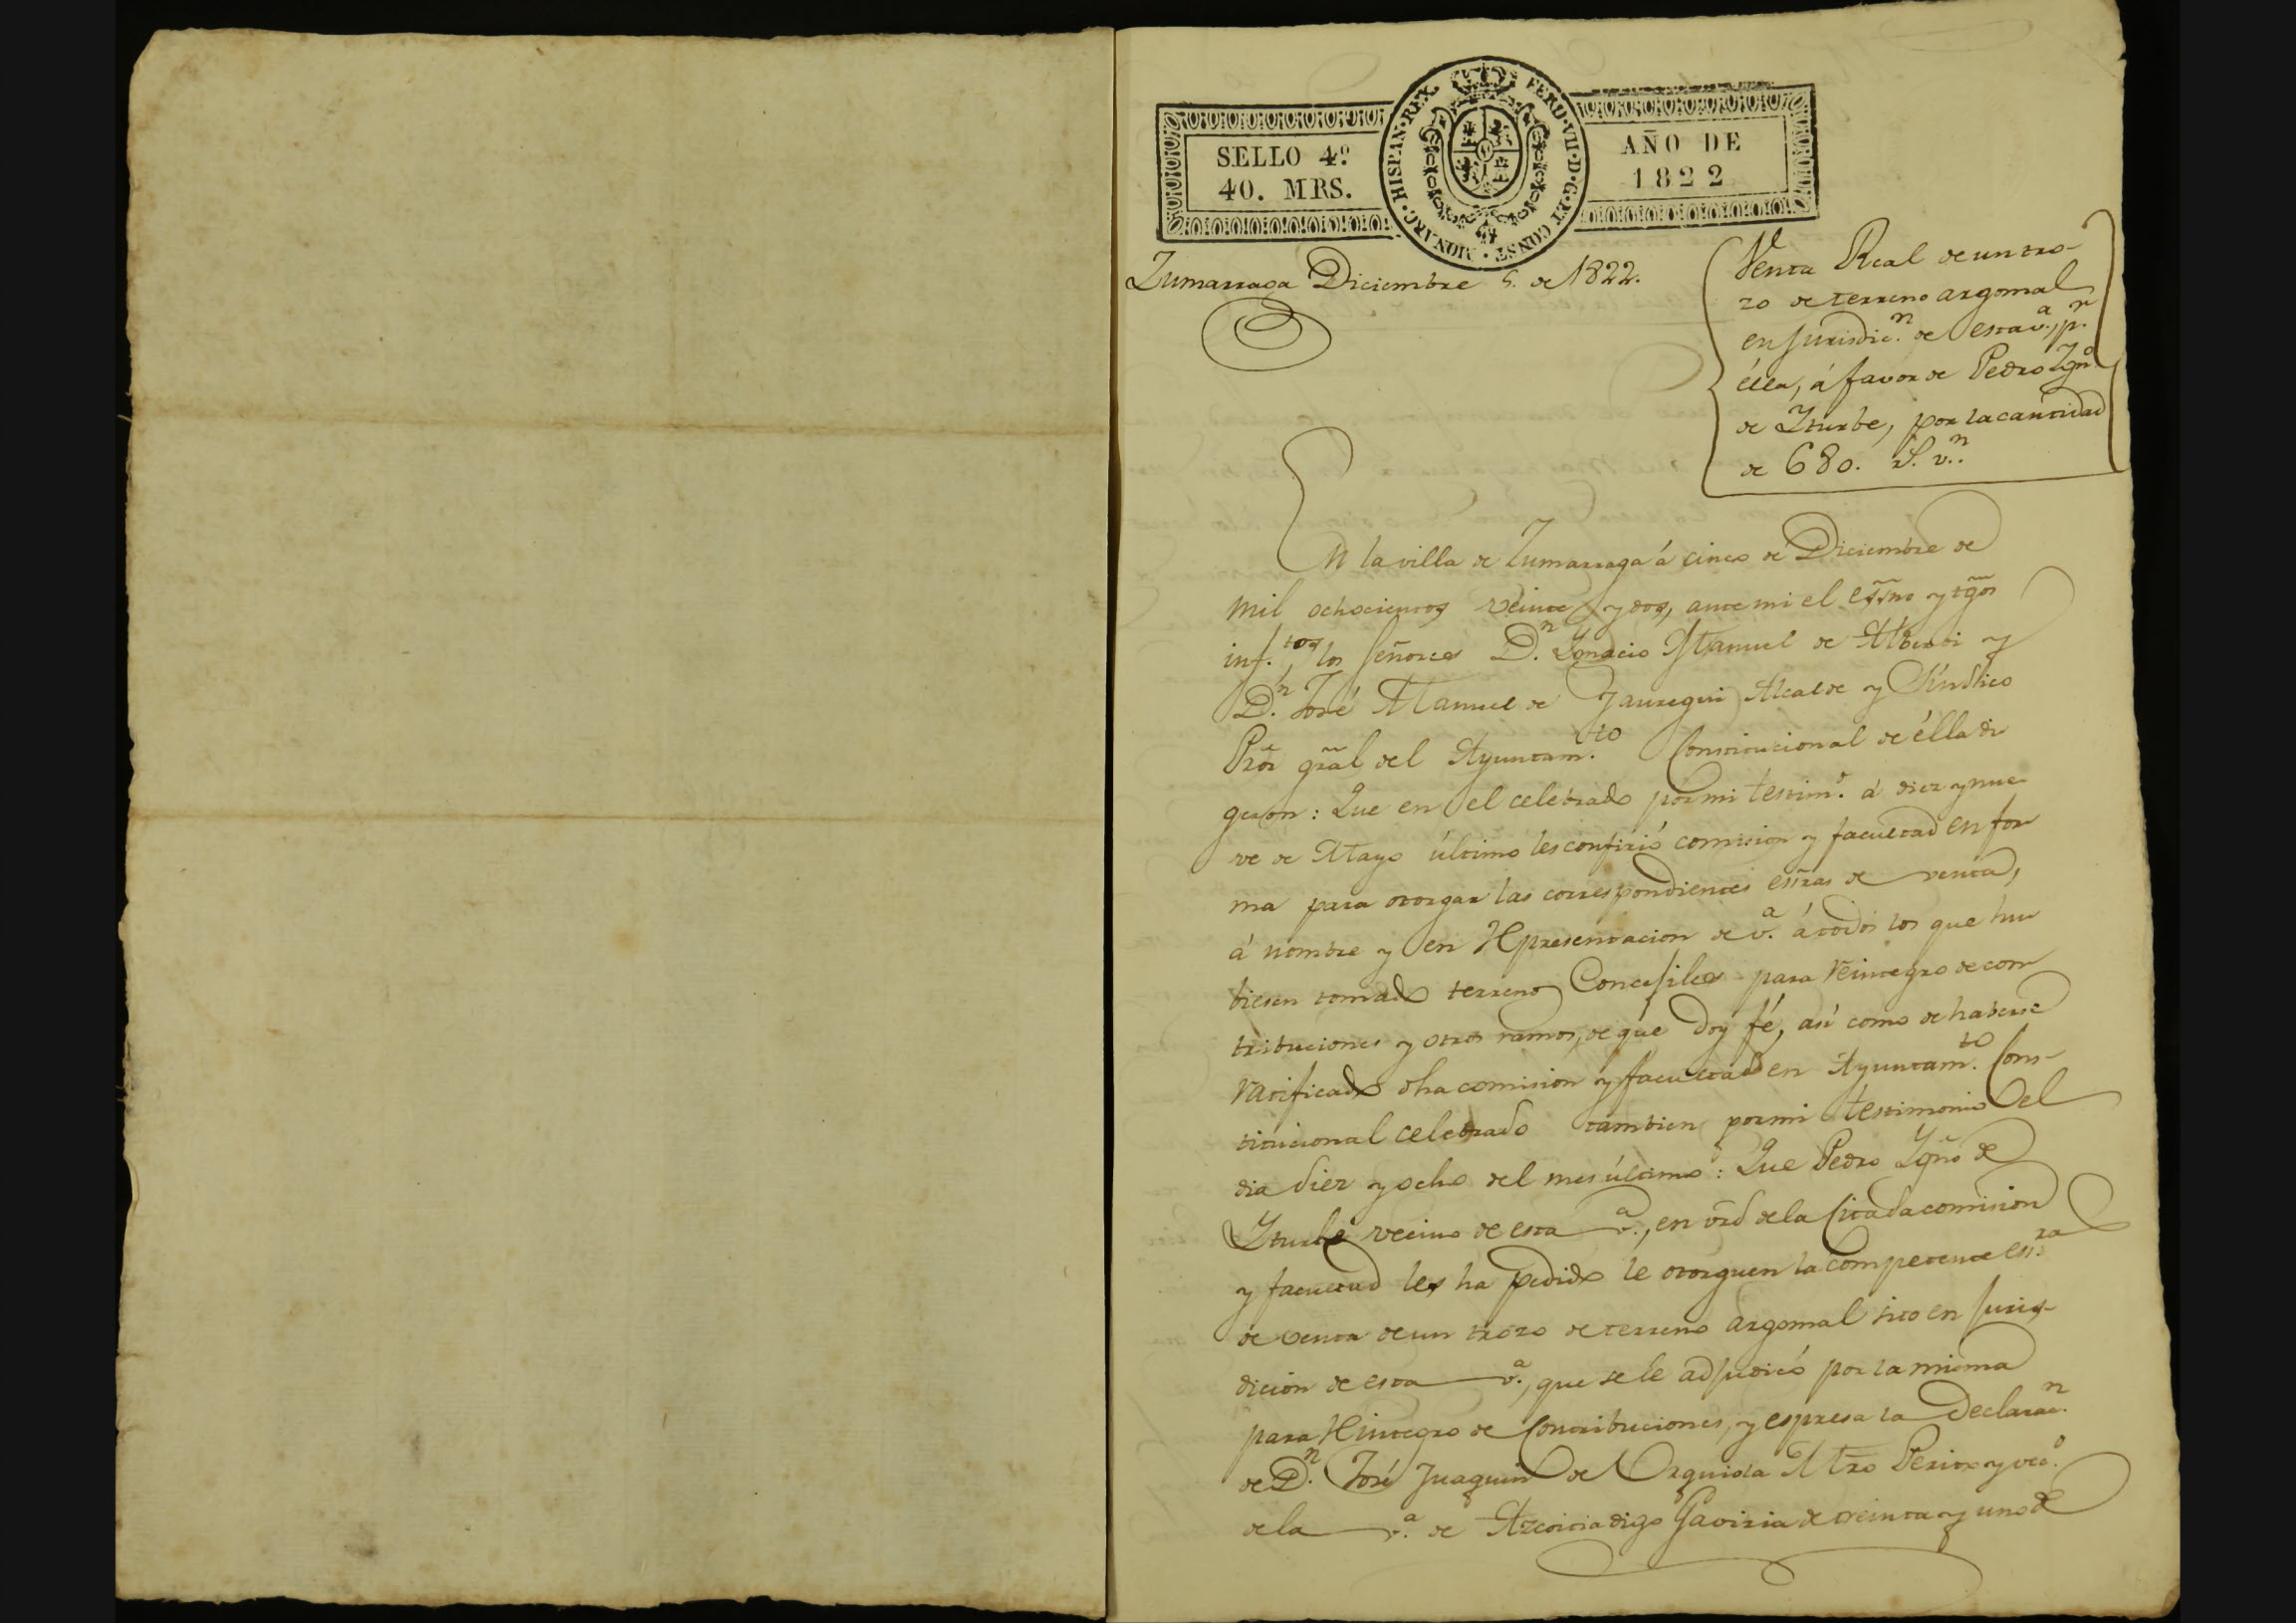 SELLO 4º
40. MRS.
FERD·VII·D·G·ET CONST·MONARC·HISPAN·REX·
AÑO DE
1822
Zumarraga Diciembre 5. de 1822.
Venta Real de un tro-
zo de terreno argomal
en Jurisdic.n de esta v.a, p.r
élla, á favor de Pedro Ygn.o
de Yturbe, por la cantidad
de 680. r.s v.n
En la villa de Zumarraga á cinco de Diciembre de
mil ochocientos veinte y dos, ante mi el essno y tgos
inf.tos, los Señores D.n Ygnacio Manuel de Alberdi y
D.n José Manuel de Jauregui Alcalde y Síndico
Pror gral del Ayuntam.to Constitucional de élla di
geron: Que en el celebrado por mi testim.o á diez y nue
ve de Mayo último les confirió comision y facultad en for
ma para otorgar las correspondientes essras de venta,
á nombre y en Representacion de v.a á todos los que hu
biesen tomado terrenos Concejiles para Reintegro de con
tribuciones y otros ramos, de que doy fé, así como de haberse
ratificado dha comision y facultad en Ayuntam.to Cons-
titucional celebrado tambien por mi testimonio el
dia diez y ocho del mes último: Que Pedro Ygño de
Yturbe vecino de esta v.a, en vrd de la Citada comision
y facultad les ha pedido le otorguen la competente ess.ra
de venta de un trozo de terreno argomal sito en Juris-
dicion de esta v.a, que se le adjudicó por la misma
para Reintegro de Contribuciones, y espresa la Declarac.n
de D.n José Juaquin de Orquiola Mtro Perito y vec.o
de la v.a de Azcoitia digo Gaviria de treinta y uno de